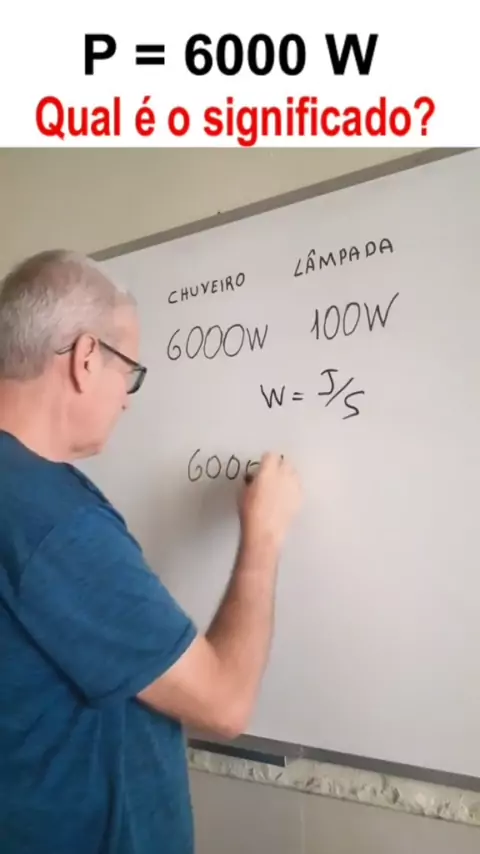 P = 6000 W
Qual é o significado?
CHUVEIRO LÂMPADA
6000W 100W
W = J/S
600